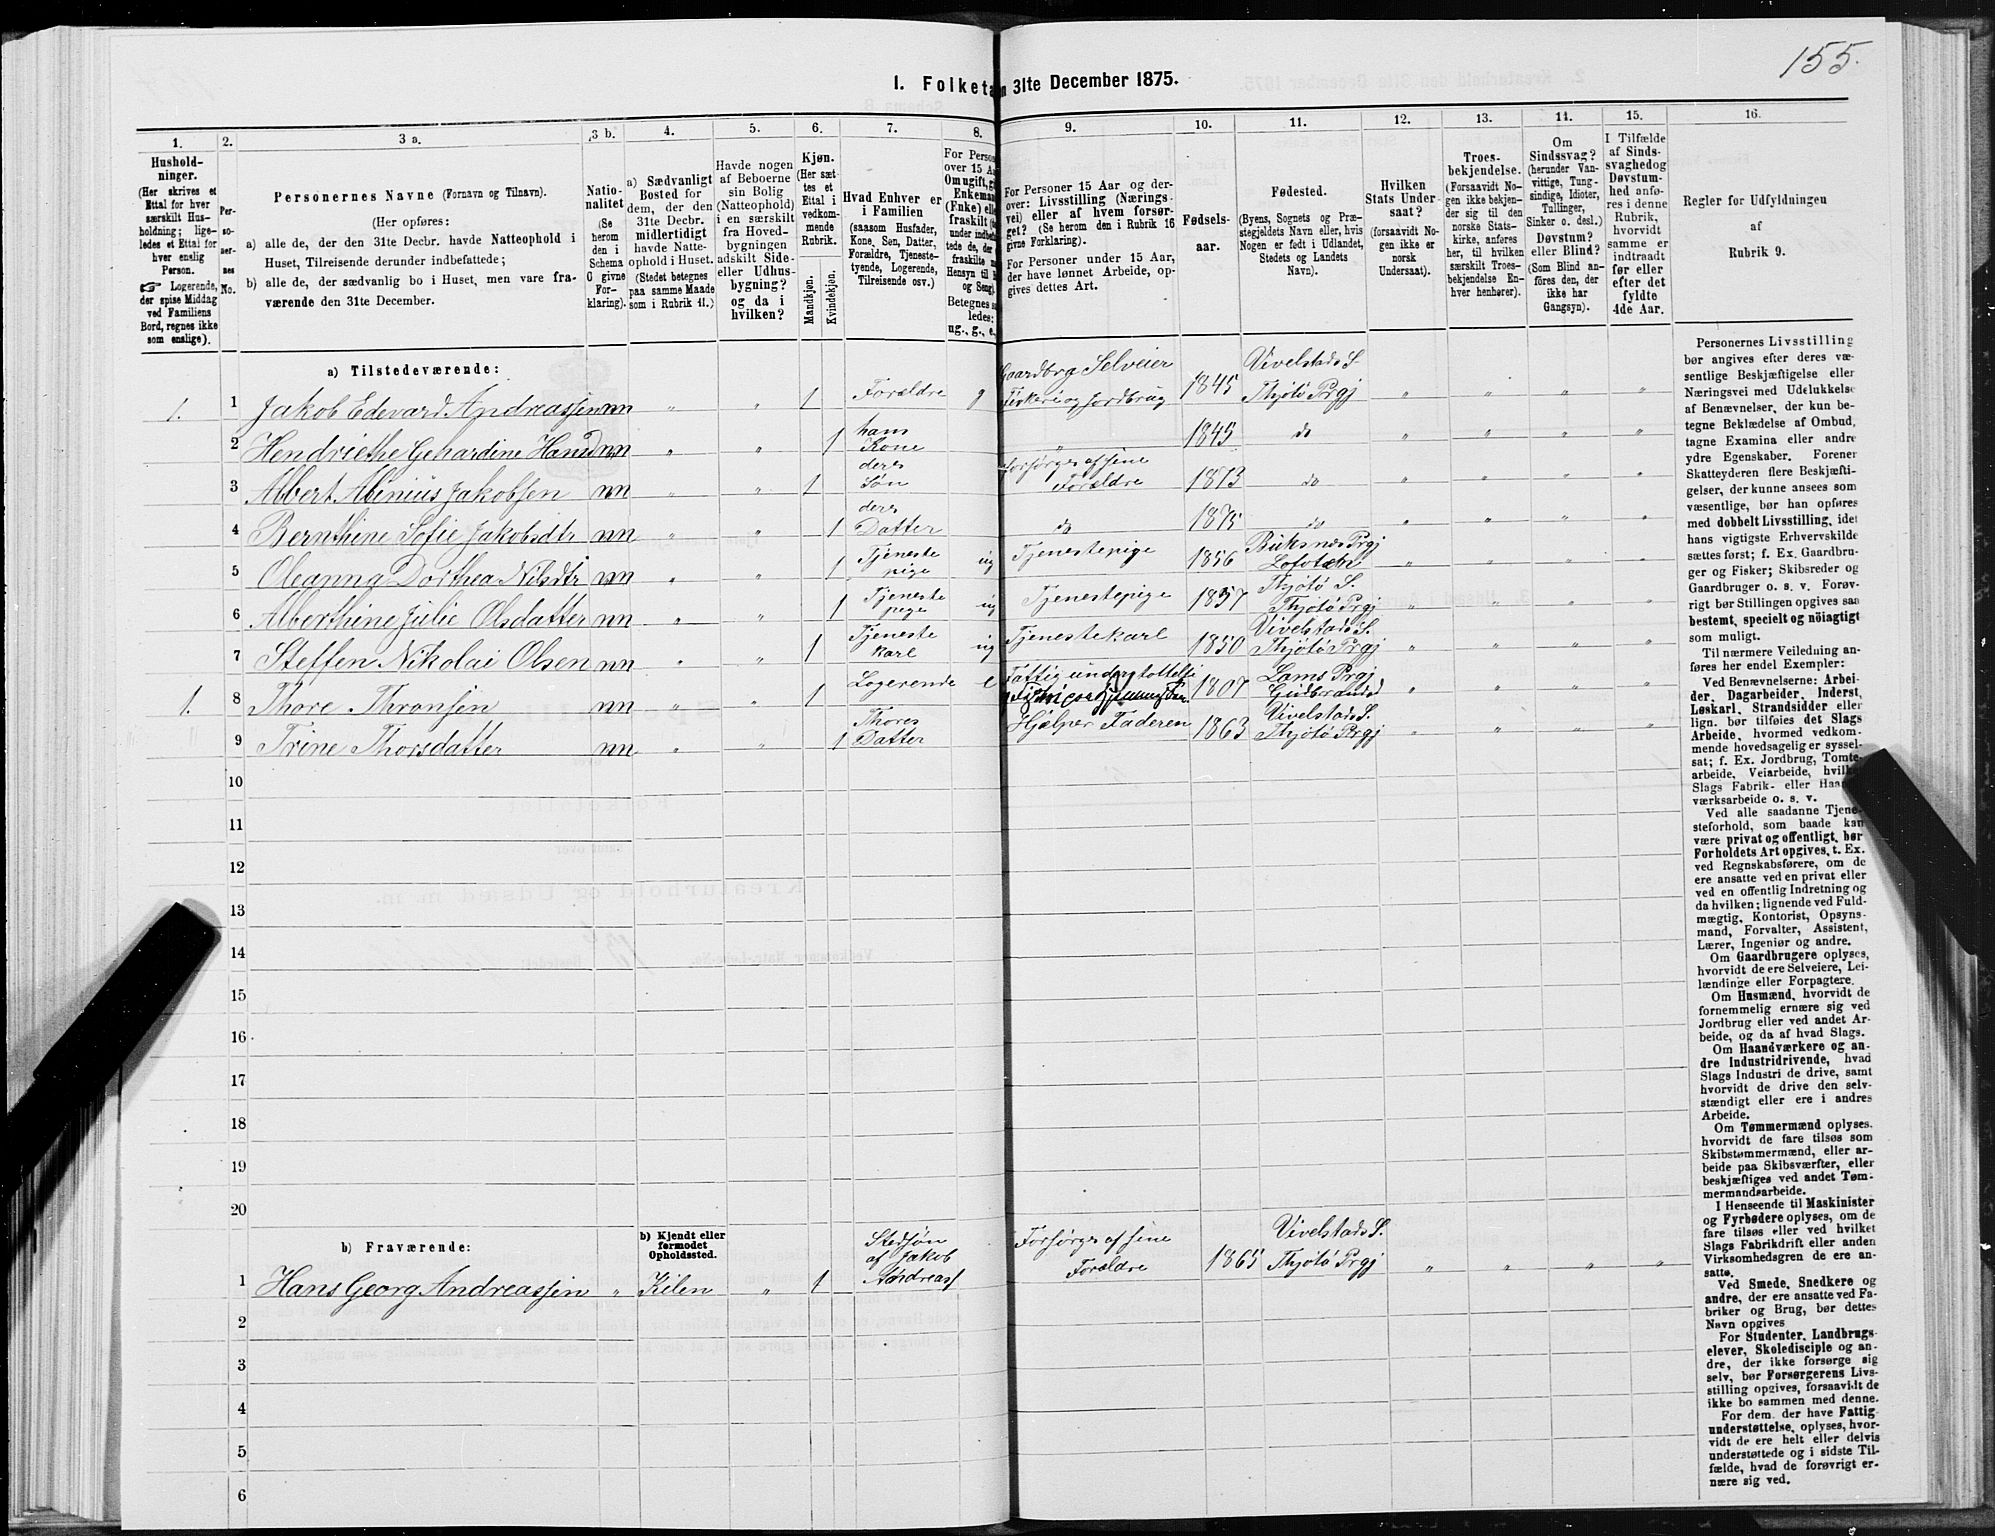 155.
I. Folketa n 31te December 1875.
1. 2. 3 a. 3 b. 4. 5. 6. 7. 8. 9. 10. 11. 12. 13. 14. 15. 16.
Hushold-
ninger.
(Her skrives et
Ettal for hver
særskilt Hus-
holdning; lige-
ledes et Ettal for
hver enslig
Person.
☞ Logerende,
der spise Middag
ved Familiens
Bord, regnes ikke
som enslige).
Per-
so-
ner-
nes
No.
Personernes Navne (Fornavn og Tilnavn).
(Her opføres:
a) alle de, der den 31te Decbr. havde Natteophold i
Huset, Tilreisende derunder indbefattede;
b) alle de, der sædvanlig bo i Huset, men vare fra-
værende den 31te December.
Natio-
nalitet
(Se
herom
den i
Schema
C givne
For-
klaring).
a) Sædvanligt
Bosted for
dem, der den
31te Decbr.
midlertidigt
havde Natte-
ophold i Huset.
(Stedet betegnes
paa samme Maade
som i Rubrik 11.)
Havde nogen
af Beboerne
sin Bolig
(Natteophold)
i en særskilt
fra Hoved-
bygningen
adskilt Side-
eller Udhus-
bygning?
og da i
hvilken?
Kjøn.
(Her sæt-
tes et
Ettal i
vedkom-
mende
Rubrik.
Mandkjøn.
Kvindekjøn.
Hvad Enhver er
i Familien
(saasom Husfader,
Kone, Søn, Datter,
Forældre, Tjeneste-
tyende, Logerende,
Tilreisende osv.)
For Person
over 15 Aa
Om ugift, gi
Enkeman
(Enke) elle
fraskilt
under indbe
tede de, der
fraskilte m
Hensyn til B
og Seng).
Betegnes s
ledes:
ug., g., e.,
For Personer 15 Aar og der-
over: Livsstilling (Nærings-
vei) eller af hvem forsør-
get? (Se herom den i Rubrik 16
givne Forklaring).
For Personer under 15 Aar,
der have lønnet Arbeide, op-
gives dettes Art.
Fødsels-
aar.
Fødested.
(Byens, Sognets og Præ-
stegjeldets Navn eller, hvis
Nogen er født i Udlandet,
Stedets og Landets
Navn).
Hvilken
Stats Under-
saat?
(forsaavidt No-
gen ikke er
norsk
Undersaat).
Troes-
bekjendelse.
(Forsaavidt No-
gen ikke bekjen-
der sig til den
norske Stats-
kirke, anføres
her, til hvilken
særskilt Troes-
bekjendelse En-
hver henhører).
Om
Sindssvag?
(herunder Van-
vittige, Tung-
sindige, Idioter,
Tullinger,
Sinker o. desl.)
Døvstum?
eller Blind?
(Som Blind an-
føres den, der
ikke har
Gangsyn).
I Tilfælde
af Sinds-
svaghed og
Døvstum-
hed anfø-
res i denne
Rubrik,
hvorvidt
samme er
indtraadt
før eller
efter det
fyldte
4de Aar.
Regler for Udfyldningen
af
Rubrik 9.
a) Tilstedeværende:
1. 1 Jakob Edevard Andreassen nn " " 1 Forældre g Gaardbrg Selveier Fiskeri og Jordbrug 1845 Vivelstads S. Thjøtø Prgj " " " "
2 Hendriethe Gerhardine Hansd nn " " 1 hans Kone " 1845 do " " " "
3 Albert Abinius Jakobsen nn " " 1 deres Søn Forsørges af sine Forældre 1873 do " " " "
4 Bernthine Sofie Jakobsdtr nn " " 1 deres Datter do 1875 do " " " "
5 Oleanna Dorthea Nilsdtr nn " " 1 Tjeneste pige ug Tjenestepige 1856 Buksnes Prgj Lofoten " " " "
6 Alberthine Julie Olsdatter nn " " 1 Tjeneste pige ug Tjenestepige 1857 Thjøtø S. Thjøtø Prgj " " " "
7 Steffen Nikolai Olsen nn " " 1 Tjeneste karl ug Tjenestekarl 1850 Vivelstads S. Thjøtø Prgj " " " "
1. 8 Thore Thronsen nn " " 1 Logerende e Fattig understøttelse 1807 Loms Prgj Gudbrandsd " " " "
9 Trine Thorsdatter nn " " 1 Thores Datter Hjælper Faderen 1863 Vivelstads S. Thjøtø Prgj " " " "
10
11
12
13
14
15
16
17
18
19
20
b) Fraværende:
b) Kjendt eller
formodet
Opholdssted.
1 Hans Georg Andreassen " Kilen " 1 Stedsøn af Jakob Andreass Forsørges af sine Forældre 1865 Vivelstads S. Thjøtø Prgj " " " "
2
3
4
5
6
Personernes Livsstilling
bør angives efter deres væ-
sentlige Beskjæftigelse eller
Næringsvei med Udelukkelse
af Benævnelser, der kun be-
tegne Beklædelse af Ombud,
tagne Examina eller andre
ydre Egenskaber. Forener
Skatteyderen flere Beskjæfti-
gelser, der kunne ansees som
væsentlige, bør han opføres
med dobbelt Livsstilling, idet
hans vigtigste Erhvervskilde
sættes først; f. Ex. Gaardbru-
ger og Fisker; Skibsreder og
Gaardbruger o. s. v. Forøv-
rigt bør Stillingen opgives saa
bestemt, specielt og nöiagtigt
som muligt.
Til nærmere Veiledning an-
føres her endel Exempler:
Ved Benævnelserne: Arbei-
der, Dagarbeider, Inderst,
Løskarl, Strandsidder eller
lign. bør tilføies det Slags
Arbeide, hvormed vedkom-
mende hovedsagelig er syssel-
sat; f. Ex. Jordbrug, Tomte-
arbeide, Veiarbeide, hvilket
Slags Fabrik- eller Haand-
værksarbeide o. s. v.
Ved alle saadanne Tjene-
steforhold, som baade kan
være privat og offentligt, bør
Forholdets Art opgives, t. Ex.
ved Regnskabsførere, om de
ere ansatte ved en privat eller
ved en offentlig Indretning og
da hvilken; lignende ved Fuld-
mægtig, Kontorist, Opsyns-
mand, Forvalter, Assistent,
Lærer, Ingeniør og andre.
Om Gaardbrugere oplyses,
hvorvidt de ere Selveiere, Lei-
lændinge eller Forpagtere.
Om Husmænd, hvorvidt de
fornemmelig ernære sig ved
Jordbrug eller ved andet Ar-
beide, og da af hvad Slags.
Om Haandværkere og an-
dre Industridrivende, hvad
Slags Industri de drive, samt
hvorvidt de drive den selv-
stændigt eller ere i andres
Arbeide.
Om Tømmermænd oplyses,
hvorvidt de fare tilsøs som
Skibstømmermænd, eller ar-
beide paa Skibsværfter, eller
beskjæftiges ved andet Tøm-
mermandsarbeide.
I Henseende til Maskinister
og Fyrbødere oplyses, om de
fare tilsøs eller ved hvilket
Slags Fabrikdrift eller anden
Virksomhedsgren de ere an-
satte.
Ved Smede, Snedkere og
andre, der ere ansatte ved Fa-
briker og Brug, bør dettes
Navn opgives
For Studenter, Landbrugs-
elever, Skoledisciple og an-
dre, der ikke forsørge sig
selv, bør Forsørgerens Livs-
stilling opgives, forsaavidt de
ikke bo sammen med denne.
For dem, der have Fattig-
understøttelse, oplyses, hvor-
vidt de ere helt eller delvis
understøttede og i sidste Til-
fælde, hvad de forøvrigt er-
nære sig ved.